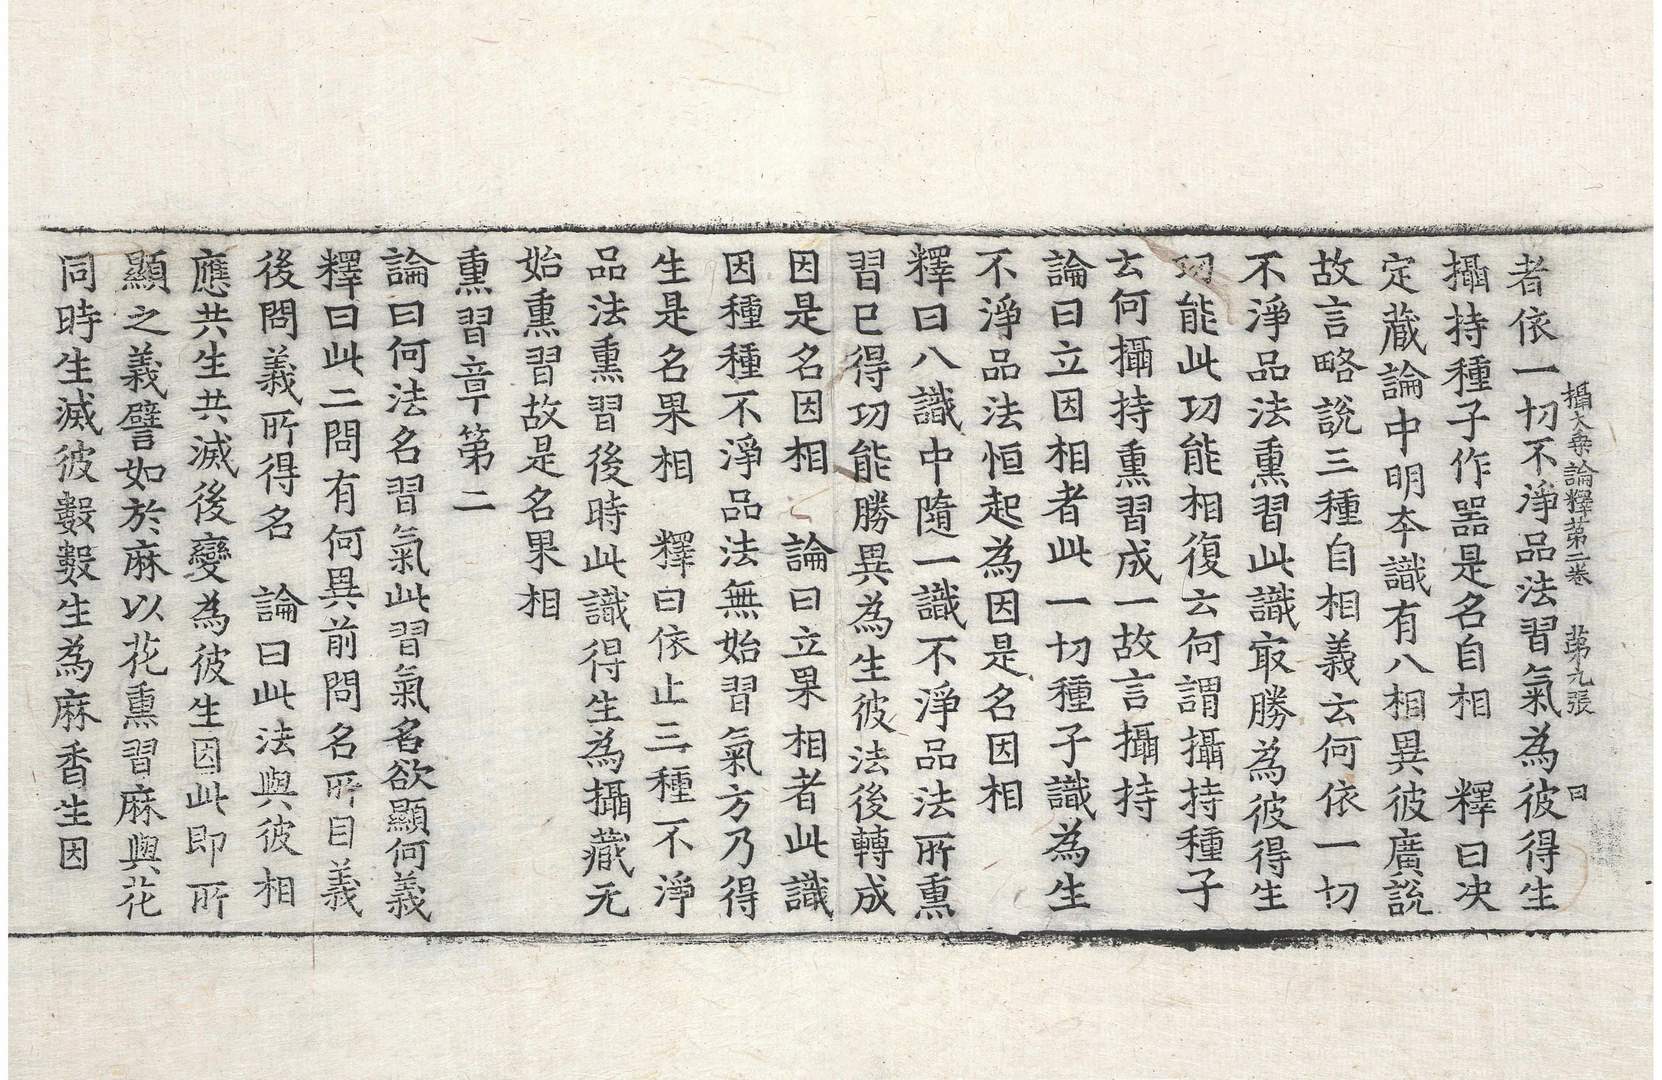 攝大乗論釋第二卷　第九張　曰
者依一切不淨品法習氣為彼得生
攝持種子作噐是名自相　釋曰决
定藏論中明夲識有八相異彼廣說
故言略說三種自相義云何依一切
不淨品法熏習此識㝡勝為彼得生
功能此功能相復云何謂攝持種子
云何攝持熏習成一故言攝持
論曰立因相者此一切種子識為生
不淨品法恒起為因是名因相
釋曰八識中隨一識不淨品法所熏
習已得功能勝異為生彼法後轉成
因是名因相　論曰立果相者此識
因種種不淨品法無始習氣方乃得
生是名果相　釋曰依止三種不淨
品法熏習後時此識得生為攝藏无
始熏習故是名果相
熏習章第二
論曰何法名習氣此習氣名欲顯何義
釋曰此二問有何異前問名所目義
後問義所得名　論曰此法與彼相
應共生共滅後變為彼生因此即所
顯之義譬如於麻以花熏習麻與花
同時生滅彼數數生為麻香生因